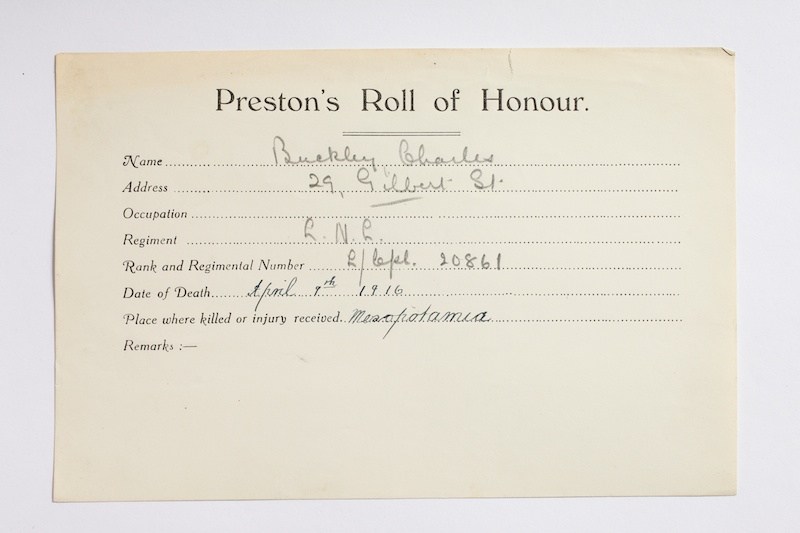 Preston's Roll of Honour.
Name Buckley Charles
Address 29, Gilbert St.
Occupation
Regiment L. N. L.
Rank and Regimental Number L/Cpl. 20861
Date of Death April 9th 1916
Place where killed or injury received. Mesopotamia
Remarks :—